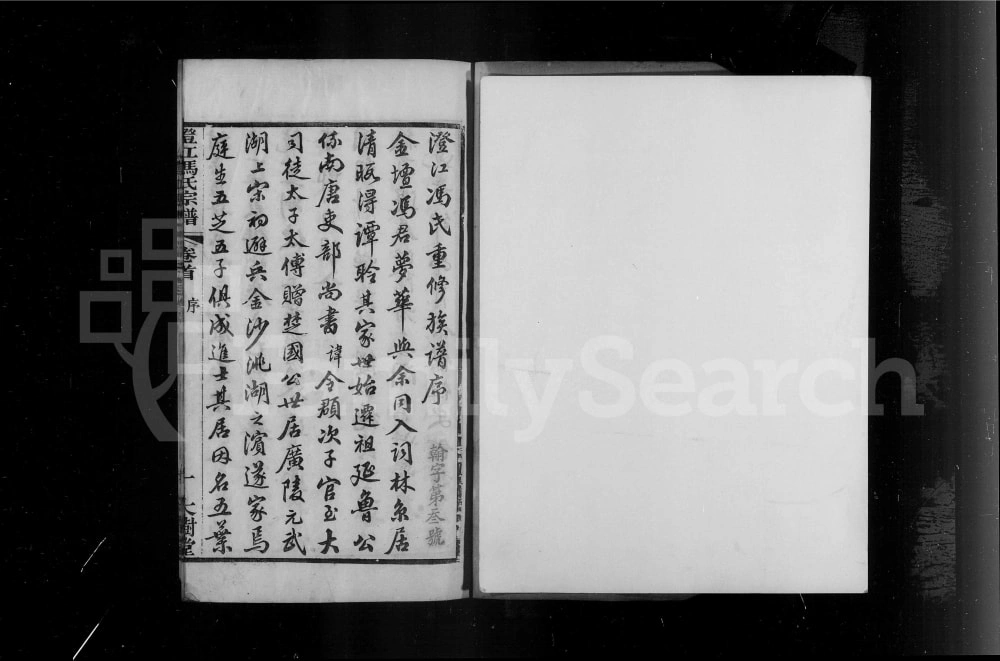 澄江馮氏重修族譜序
翰字第叁號
金壇馮君夢華與余同入詞林京居
清暇得譚聆其家世始遷祖延魯公
係南唐吏部尚書諱令頵次子官至大
司徒太子太傅贈楚國公世居廣陵元武
湖上宋初避兵金沙洮湖之濱遂家焉
庭生五芝五子俱成進士其居因名五葉
澄江馮氏宗譜
卷首
序
一
大樹堂
FamilySearch